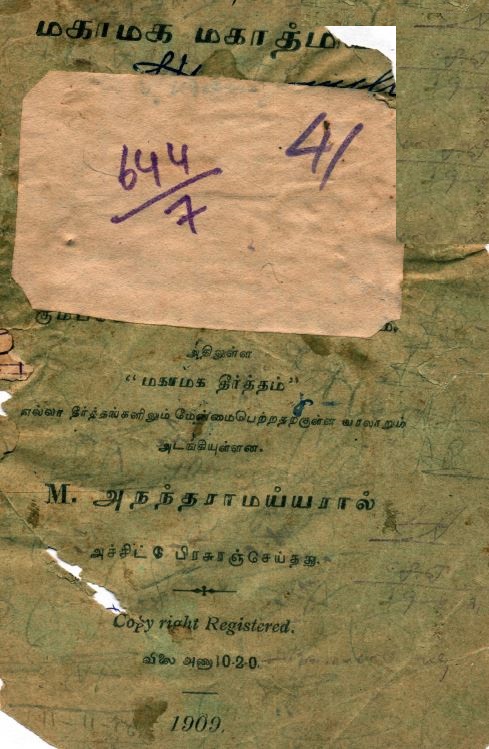 மகாமக மகாத்மி
644/7
41
அதிலுள்ள
"மகாமக தீர்த்தம்"
எல்லா தீர்த்தங்களிலும் மேன்மைபெற்றதற்குள்ள வரலாறும்
அடங்கியுள்ளன.
M. அநந்தராமய்யரால்
அச்சிட்டு பிரசுரஞ்செய்தது.
Copy right Registered.
விலை அணா 10-2-0.
1909.